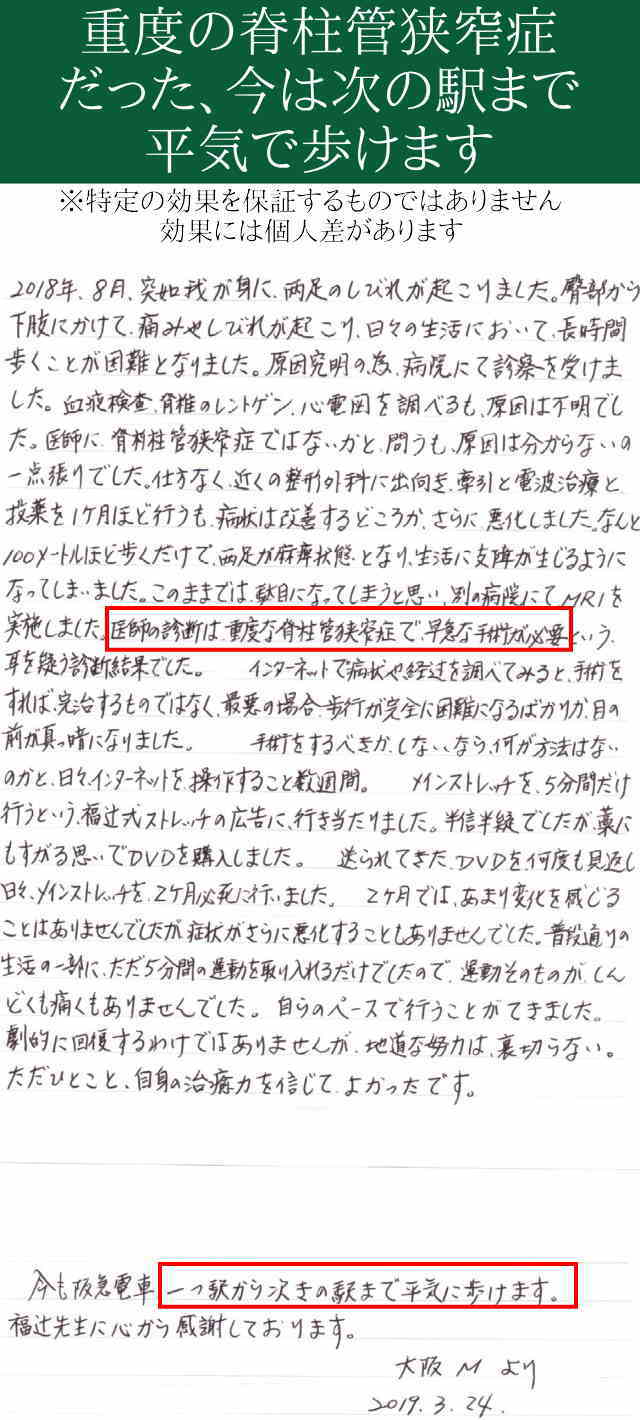 重度の脊柱管狭窄症
だった、今は次の駅まで
平気で歩けます
※特定の効果を保証するものではありません
効果には個人差があります
2018年、8月、突如我が身に、両足のしびれが起こりました。臀部から
下肢にかけて、痛みやしびれが起こり、日々の生活において、長時間
歩くことが困難となりました。原因究明の為、病院にて診察を受けま
した。血液検査、脊椎のレントゲン、心電図を調べるも、原因は不明でし
た。医師に、脊柱管狭窄症ではないかと、問うも、原因は分からないの
一点張りでした。仕方なく、近くの整形外科に出向き、牽引と電波治療と、
投薬を1ヶ月ほど行うも、病状は改善するどころか、さらに、悪化しました。なんと
100メートルほど歩くだけで、両足が麻痺状態となり、生活に支障が生じるように
なってしまいました。このままでは、駄目になってしまうと思い、別の病院にてMRIを
実施しました。医師の診断は、重度な脊柱管狭窄症で、早急な手術が必要という、
耳を疑う診断結果でした。 インターネットで病状や経過を調べてみると、手術を
すれば、完治するものではなく、最悪の場合、歩行が完全に困難になるばかりか、目の
前が真っ暗になりました。 手術をするべきか、しない、なら、何か方法はない
のかと、日々、インターネットを、操作すること数週間。 メインストレッチを、5分間だけ
行うという、福辻式ストレッチの広告に、行き当たりました。半信半疑でしたが、藁に
もすがる思いでDVDを購入しました。 送られてきた、DVDを、何度も見返し
日々、メインストレッチを、2ヶ月必死に行いました。 2ヶ月では、あまり変化を感じる
ことはありませんでしたが、症状がさらに悪化することもありませんでした。普段通りの
生活の一部に、ただ5分間の運動を取り入れるだけでしたので、運動そのものが、しん
どくも痛くもありませんでした。自らのペースで行うことができました。
劇的に回復するわけではありませんが、地道な努力は、裏切らない。
ただひとこと、自身の治癒力を信じて、よかったです。
今も阪急電車 一つ駅から次きの駅まで平気に歩けます。
福辻先生に心から感謝しております。
大阪 M より
2019.3.24.